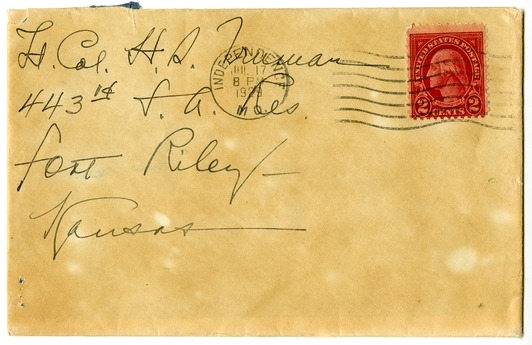 Lt. Col. H. S. Truman
443rd F. A. Res.
Fort Riley
Kansas
INDEPENDENCE
JUL 17
8 PM
MO.
UNITED STATES POSTAGE
2 CENTS 2